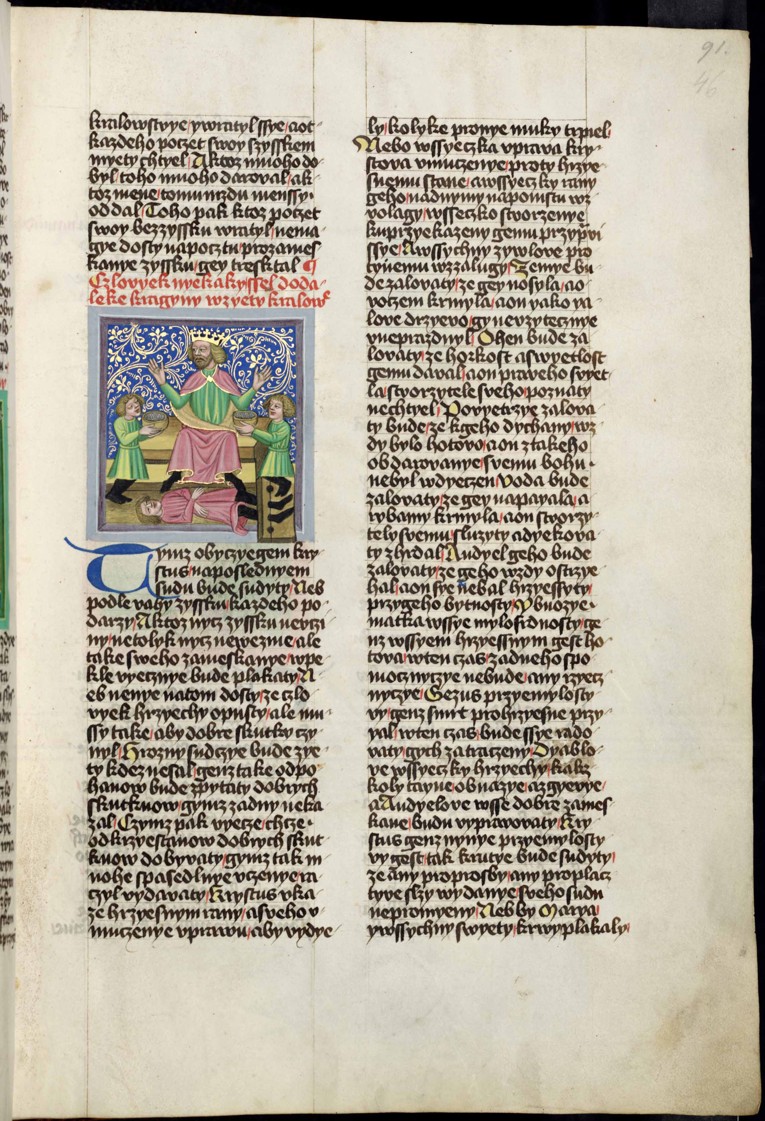 91.
46
kralowstvye ywratyl ssye aot
kazdeho poczet swoy szysskem
myety chtyel Aktoz mnoho do
byl toho mnoho daroval ak
toz mene tomu mzdu menssy
oddal Toho pak ktoz poczet
swoy bezzyssku wratyl nema
gye dosty napocztu prozames
kanye zyssku gey tresktal
Czlovyek nyekaky ssel doda
leke kragyny wzyety kralow
Tymz obyczyegem kry
stus naposlednyem
sudu bude sudyty Neb
podle vahy zyssku kazdeho po
darzy Aktoz nycz zyssku neuczi
ny netolyk nycz newezme ale
take sweho zameskanye wpe
kle vyecznye bude plakaty N
eb nenye natom dosty ze czlo
vyek hrzyechy opusty ale mu
ssy take aby dobre skutky czy
nyl Hrozny sudczye bude zye
ty kdez nesal genz take odpo
hanow bude zpytaty dobrych
skutkuow gymz zadny neka
zal Czymz pak vyecze chcze
odkrzestanow dobrych skut
kuow dobyvaty gymz tak m
nohe spasedlnye vczenye ra
czyl vydavaty Krystus vka
ze hrzyesnym rany asveho v
muczenye vpravu aby vydye
ly kolyke pronye muky trpiel
Nebo wssyeczka vprava kry
stova vmuczenye proty hrzye
snemu stane awssyeczky rany
geho nadnymy napomstu wz
volagy wsseczko stworzenye
kuprzykazeny gemu przypoi
ssye Awssychny zywlove pro
tyuemu wzzalugy Zemye bu
de zalovaty ze gey nosyla ao
voczem krmyla aon yako ya
love drzyevo gy nevzytecznye
vneprazdnyl Ohen bude za
lovaty ze horkost aswyetlost
gemu daval aon praweho swyet
la stworzytele sveho poznaty
nechtyel Povyetrzye zalova
ty bude ze kgeho dychany wz
dy bylo hotovo aon ztakeho
obdarovanye svemu bohu
nebyl wdyeczen Voda bude
zalovaty ze gey napayala a
rybamy krmyla aon stworzy
tely svemu sluzyty adyekova
ty zhrdal Andyel geho bude
zalovaty ze geho wzdy ostrzye
hal aon sye nebal hrzyessyty
przygeho bytnosty Ybuozye
matka wssye mylosrdnosty ge
nz wssyem hrzyessnym gest ho
tova wten czas zadneho spo
mocznyczye nebude any rzyecz
nyczye Gezus przyemylosty
vy genz smrt prohrzyesne przy
yal wten czas bude ssye rado
vaty gych zatraczeny Dyablo
ve wssyeczky hrzyechy kakz
koly tayne obnazye azgyevye
a Andyelove wsse dobre zames
kane budu vypravovaty Kry
stus genz nynye przyemylosty
vy gest tak krutye bude sudyty
ze any proprosby any proplacz
tyve slzy wydanye sveho sudu
nepromyeny Nebby Marya
ywssychny swyety krwy plakaly